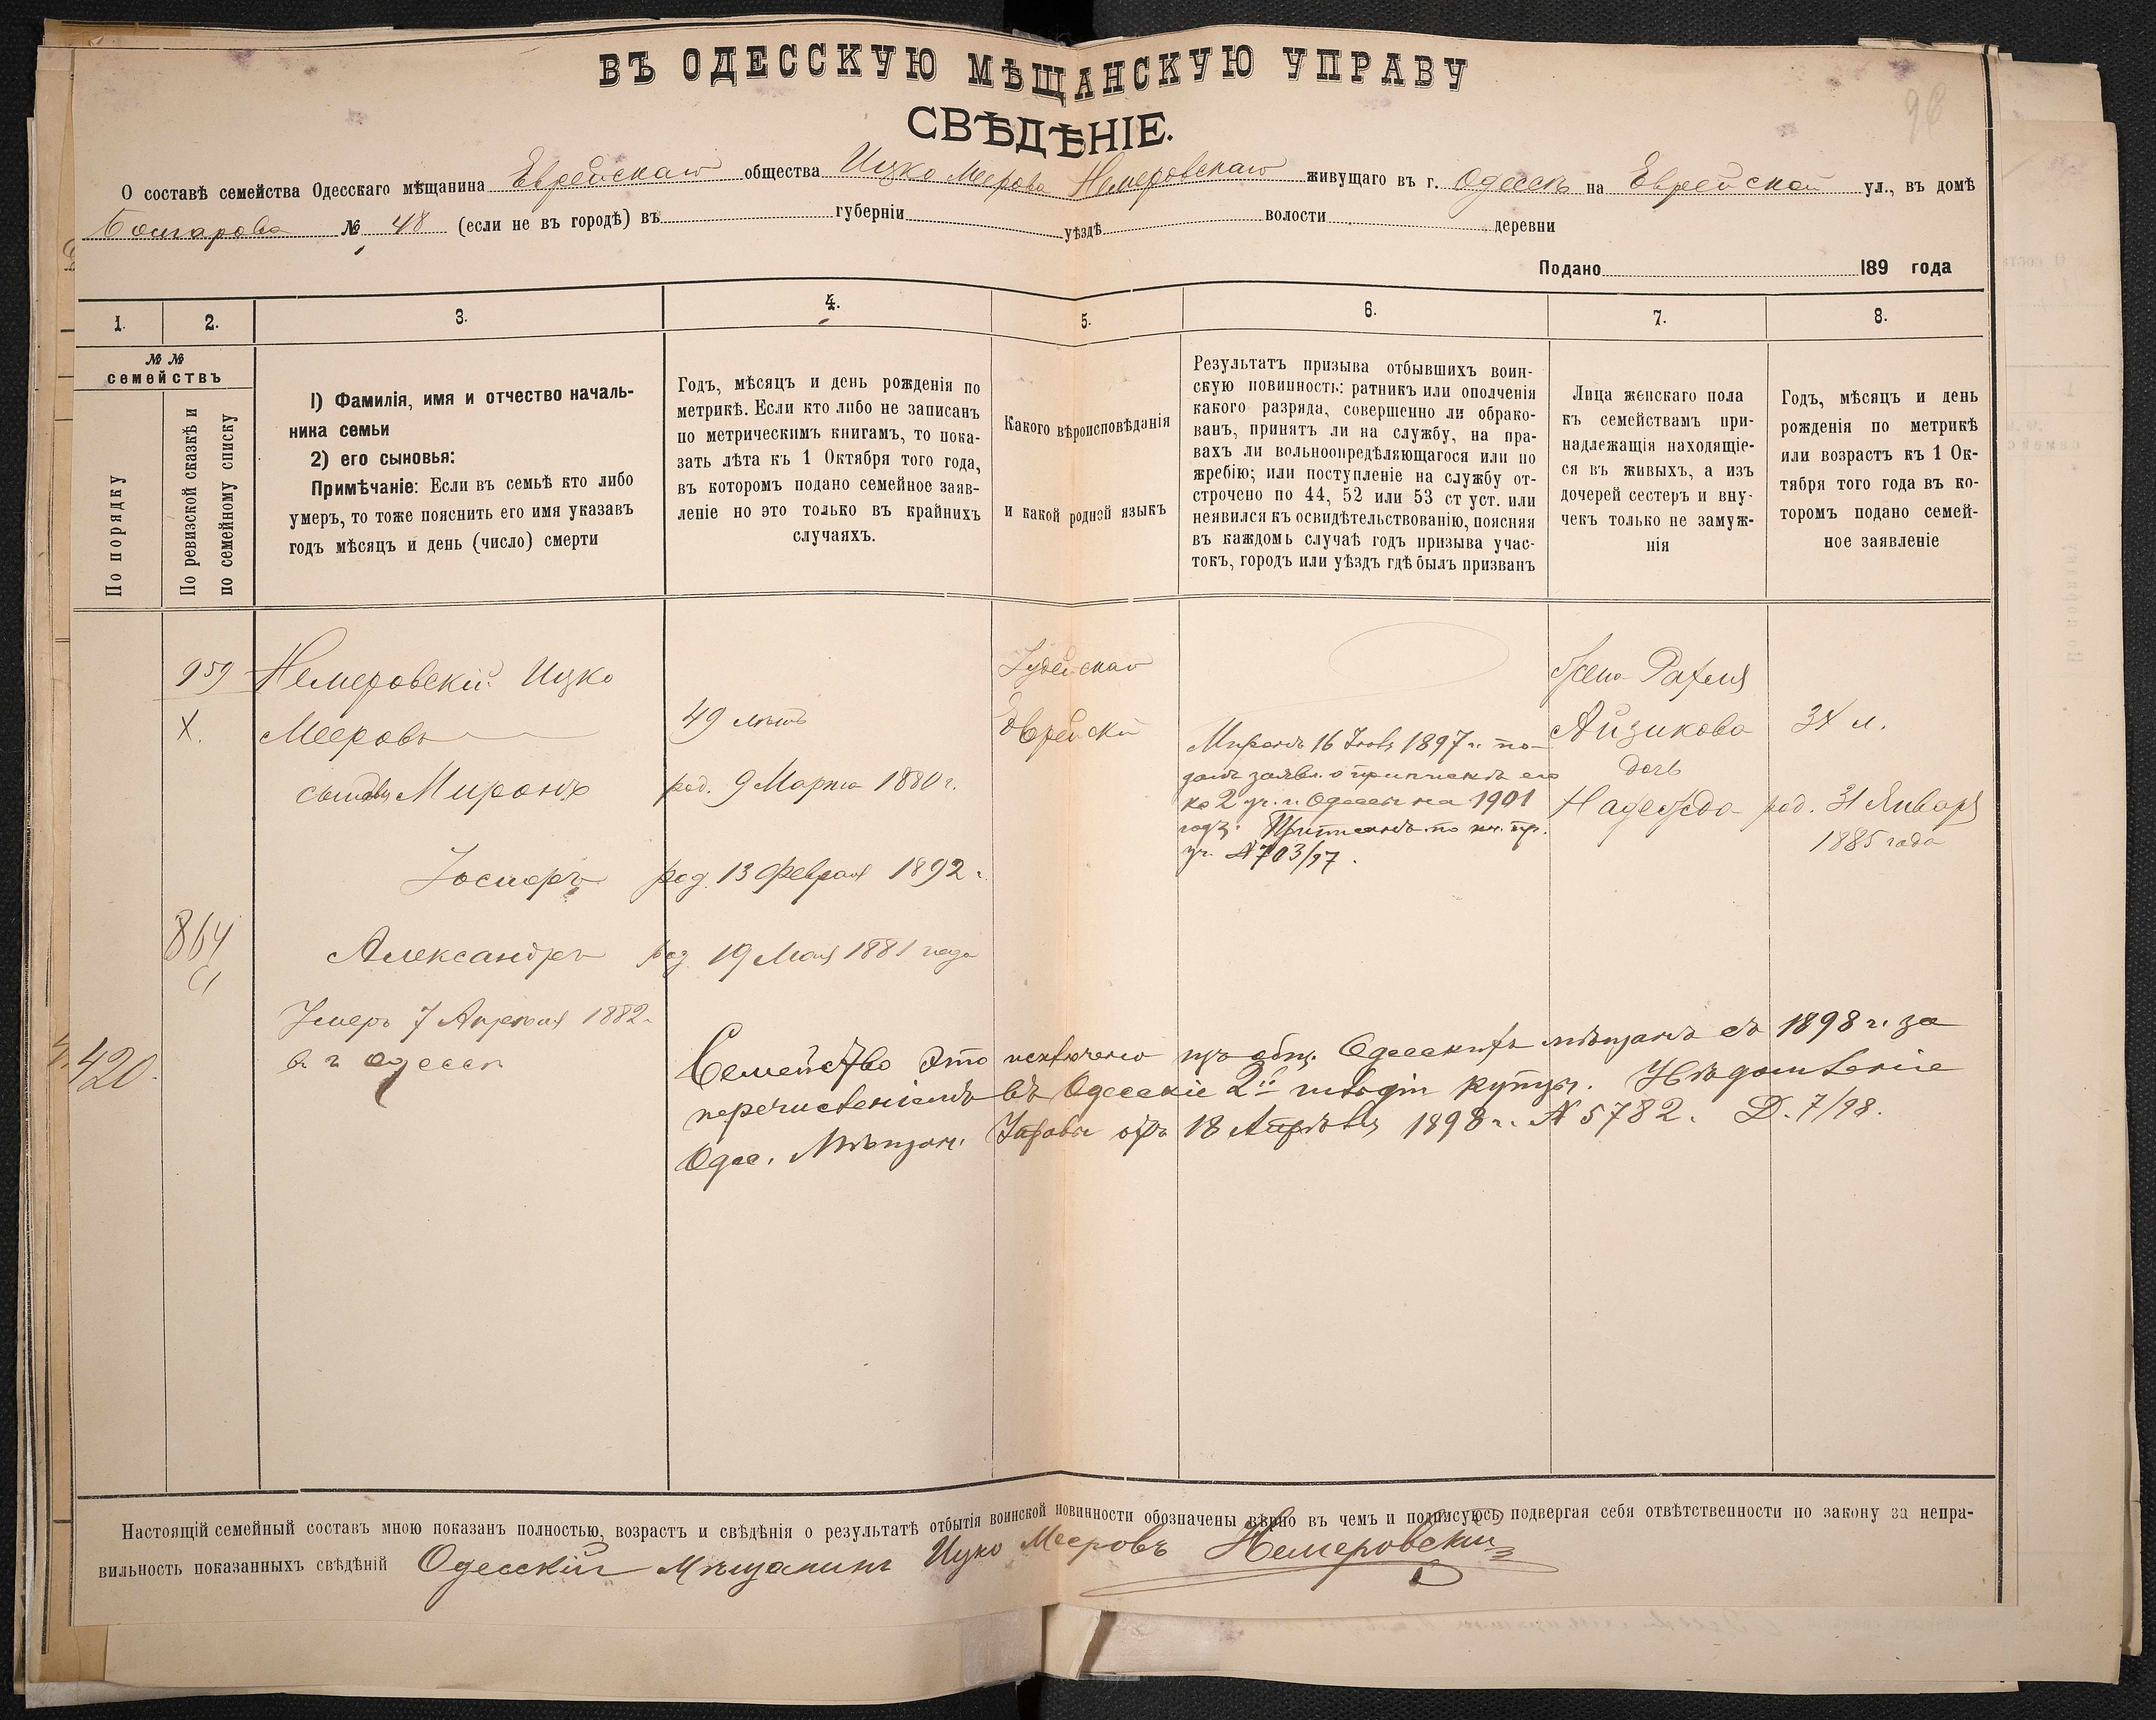 ВЪ ОДЕССКУЮ МѢЩАНСКУЮ УПРАВУ
СВѢДѢНІЕ.
О составѣ семейства Одесскаго мѣщанина Еврейскаго общества Ицко Меерова Немеровскаго живущаго въ г. Одессѣ на Еврейской ул., въ домѣ
№ 48 (если не въ городѣ) въ губерніи уѣздѣ волости деревни
Подано 189 года
1. 2. 3. 4. 5. 6. 7. 8.
№ №
семействъ
По порядку
По ревизской сказкѣ и
по семейному списку
1) Фамилія, имя и отчество началь-
ника семьи
2) его сыновья:
Примѣчаніе: Если въ семьѣ кто либо
умеръ, то тоже пояснить его имя указавъ
годъ мѣсяцъ и день (число) смерти
Годъ, мѣсяцъ и день рожденія по
метрикѣ. Если кто либо не записанъ
по метрическимъ книгамъ, то пока-
зать лѣта къ 1 Октября того года,
въ которомъ подано семейное заяв-
леніе но это только въ крайнихъ
случаяхъ.
Какого вѣроисповѣданія
и какой родной языкъ
Результатъ призыва отбывшихъ воин-
скую повинность: ратникъ или ополченія
какого разряда, совершенно ли обрако-
ванъ, принятъ ли на службу, на пра-
вахъ ли вольноопредѣляющагося или по
жребію; или поступленіе на службу от-
строчено по 44, 52 или 53 ст уст. или
неявился къ освидѣтельствованію, поясняя
въ каждомъ случаѣ годъ призыва учас-
токъ, городъ или уѣздъ гдѣ былъ призванъ
Лица женскаго пола
къ семействамъ при-
надлежащія находящіе-
ся въ живыхъ, а изъ
дочерей сестеръ и вну-
чекъ только не замуж-
нія
Годъ, мѣсяцъ и день
рожденія по метрикѣ
или возрастъ къ 1 Ок-
тября того года въ ко-
торомъ подано семей-
ное заявленіе
959
X.
864
420.
Немеровскій Ицко
Мееровъ
Миронъ
Іосифъ
Александръ
Умеръ 7 Апрѣля 1882 г.
в. г. Одессѣ
49 лѣтъ
род. 9 Марта 1880 г.
род. 13 Февраля 1892 г.
род. 19 Мая 1881 года
Іудейскаго
Еврейскій
Миронъ 16 1897 г. по-
далъ заявл. о припискѣ его
ко 2 уч. г. Одессы на 1901
годъ. Приписанъ по кн. пр.
уч. № 703/97.
Жена Рахля
Айзикова
дочь
Надежда
34 л.
род. 31 Января
1885 года
Семейство это исключено изъ общ. Одесскихъ мѣщанъ съ 1898 г. за
перечисленіемъ въ Одесскіе 2й гильдіи купцы. Увѣдомленіе
Одес. Мѣщан. Управы отъ 18 Апрѣля 1898 г. № 5782. Д. 7/98.
Настоящій семейный составъ мною показанъ полностью, возрастъ и свѣдѣнія о результатѣ отбытія воинской повинности обозначены вѣрно въ чемъ и подписуюсь подвергая себя отвѣтственности по закону за непра-
вильность показанныхъ свѣдѣній Одесскій Мѣщанинъ Ицко Мееровъ Немеровскій